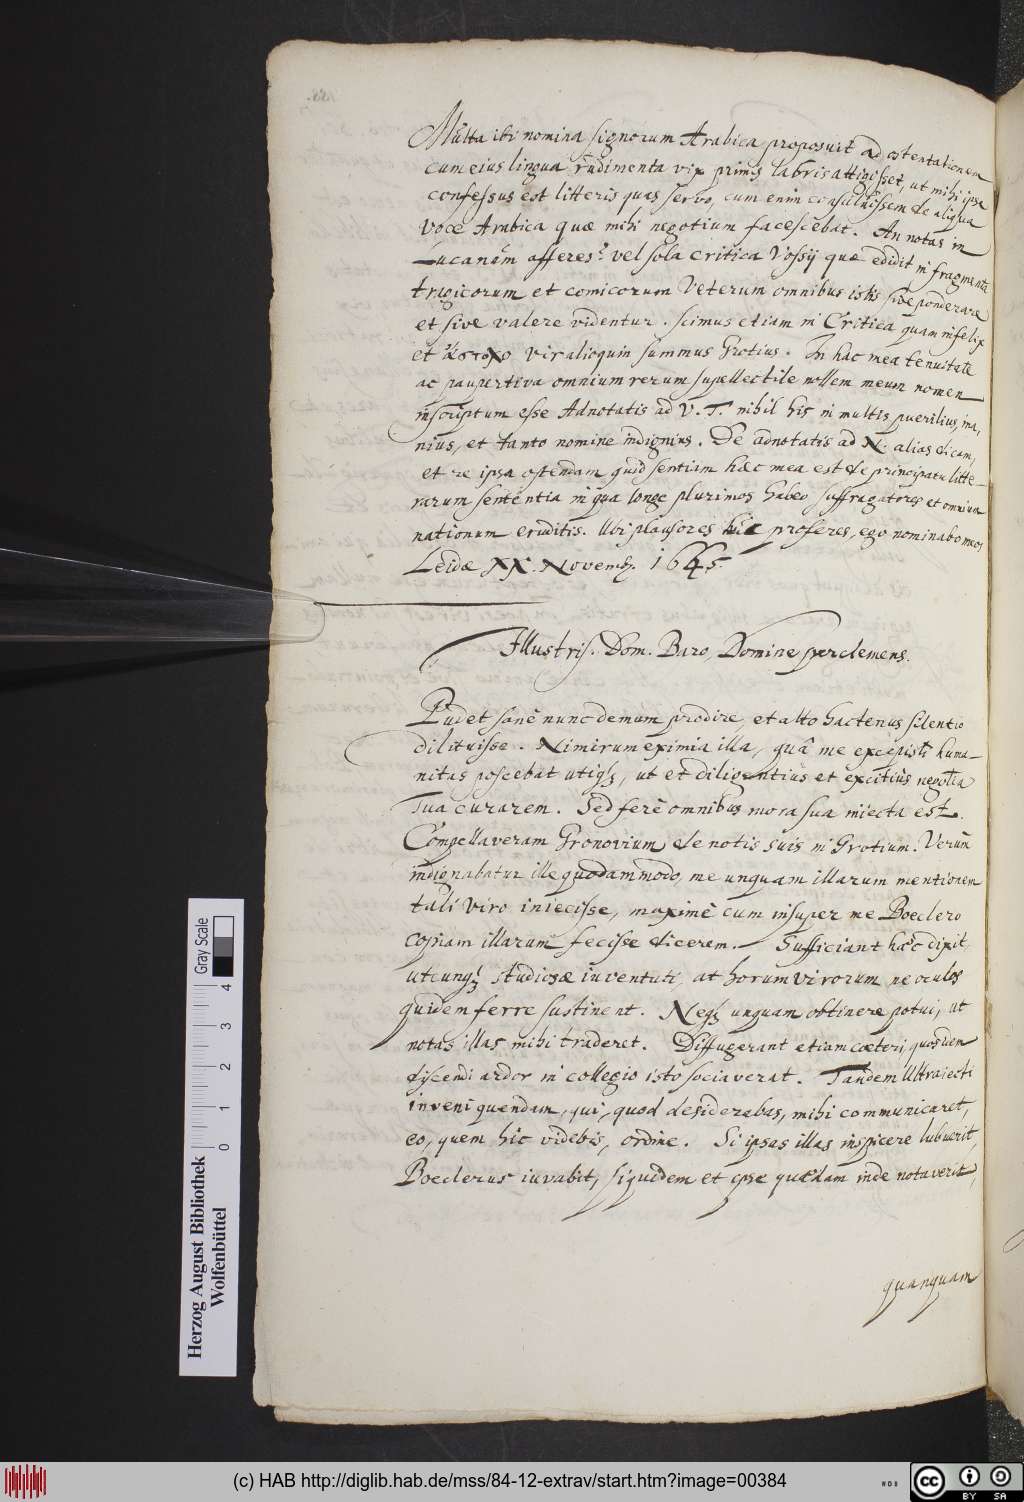 Multa ibi nomina signorum Arabica proposuit ad ostentationem
cum eius lingua rudimenta vix primis labris attigisset, ut mihi ipse
confessus est litteris quas servo, cum enim consuluissem de aliqua
voce Arabica quæ mihi negotium facescebat. An notas in
Lucanum afferes? vel sola critica Vossij quæ edidit in fragmenta
tragicorum et comicorum Veterum omnibus istis sive ponderare
et sive valere videntur. scimus etiam in Critica quam infelix
et vir alioquin summus Grotius. In hac mea tenuitate
ac paupertina omnium rerum supellectile nollem meum nomen
inscriptum esse Adnotatis ad V. T. nihil his in multis puerilius, ina-
nius, et tanto nomine indignius. De adnotatis ad N. alias dicam,
et re ipsa ostendam quid sentiam hæc mea est de principatu litte-
rarum sententia in qua longe plurimos habeo suffragatores et omnium
nationum eruditis. Ubi plausores hic proferes, ego nominabo meos
Leidæ XX. Novemb. 1645.
Illustris. Dom. Baro, Domine perclemens.
Pudet sanè nunc demum prodire, et alto hactenus silentio
dilituisse. Nimirum eximia illa, quâ me excepisti huma-
nitas poscebat utiq₃, ut et diligentius et excitius negotia
Tua curarem. Sed ferè omnibus mora sua iniecta est.
Compellaveram Gronovium de notis suis in Grotium. Verùm
indignabatur ille quodammodo, me unquam illarum mentionem
tali viro iniecisse, maximè cum insuper me Boeclero
copiam illarum fecisse dicerem. Sufficiant hæc dixit
utcunq₃ studiosæ iuventuti, at horum virorum ne oculos
quidem ferre sustinent. Neq₃ unquam obtinere potui, ut
notas illas mihi traderet. Diffugerant etiam cæteri, quos idem
discendi ardor in collegio isto sociaverat. Tandem Ultraiecti
inveni quendam, qui, quod desiderabas, mihi communicaret,
eo, quem hic videbis, ordine. Si ipsas illas inspicere lubuerit,
Boeclerus iuvabit, siquidem et ipse quædam inde notaverit,
quanquam
Gray Scale
0 1 2 3 4
Herzog August Bibliothek
Wolfenbüttel
(c) HAB http://diglib.hab.de/mss/84-12-extrav/start.htm?image=00384
cc BY SA